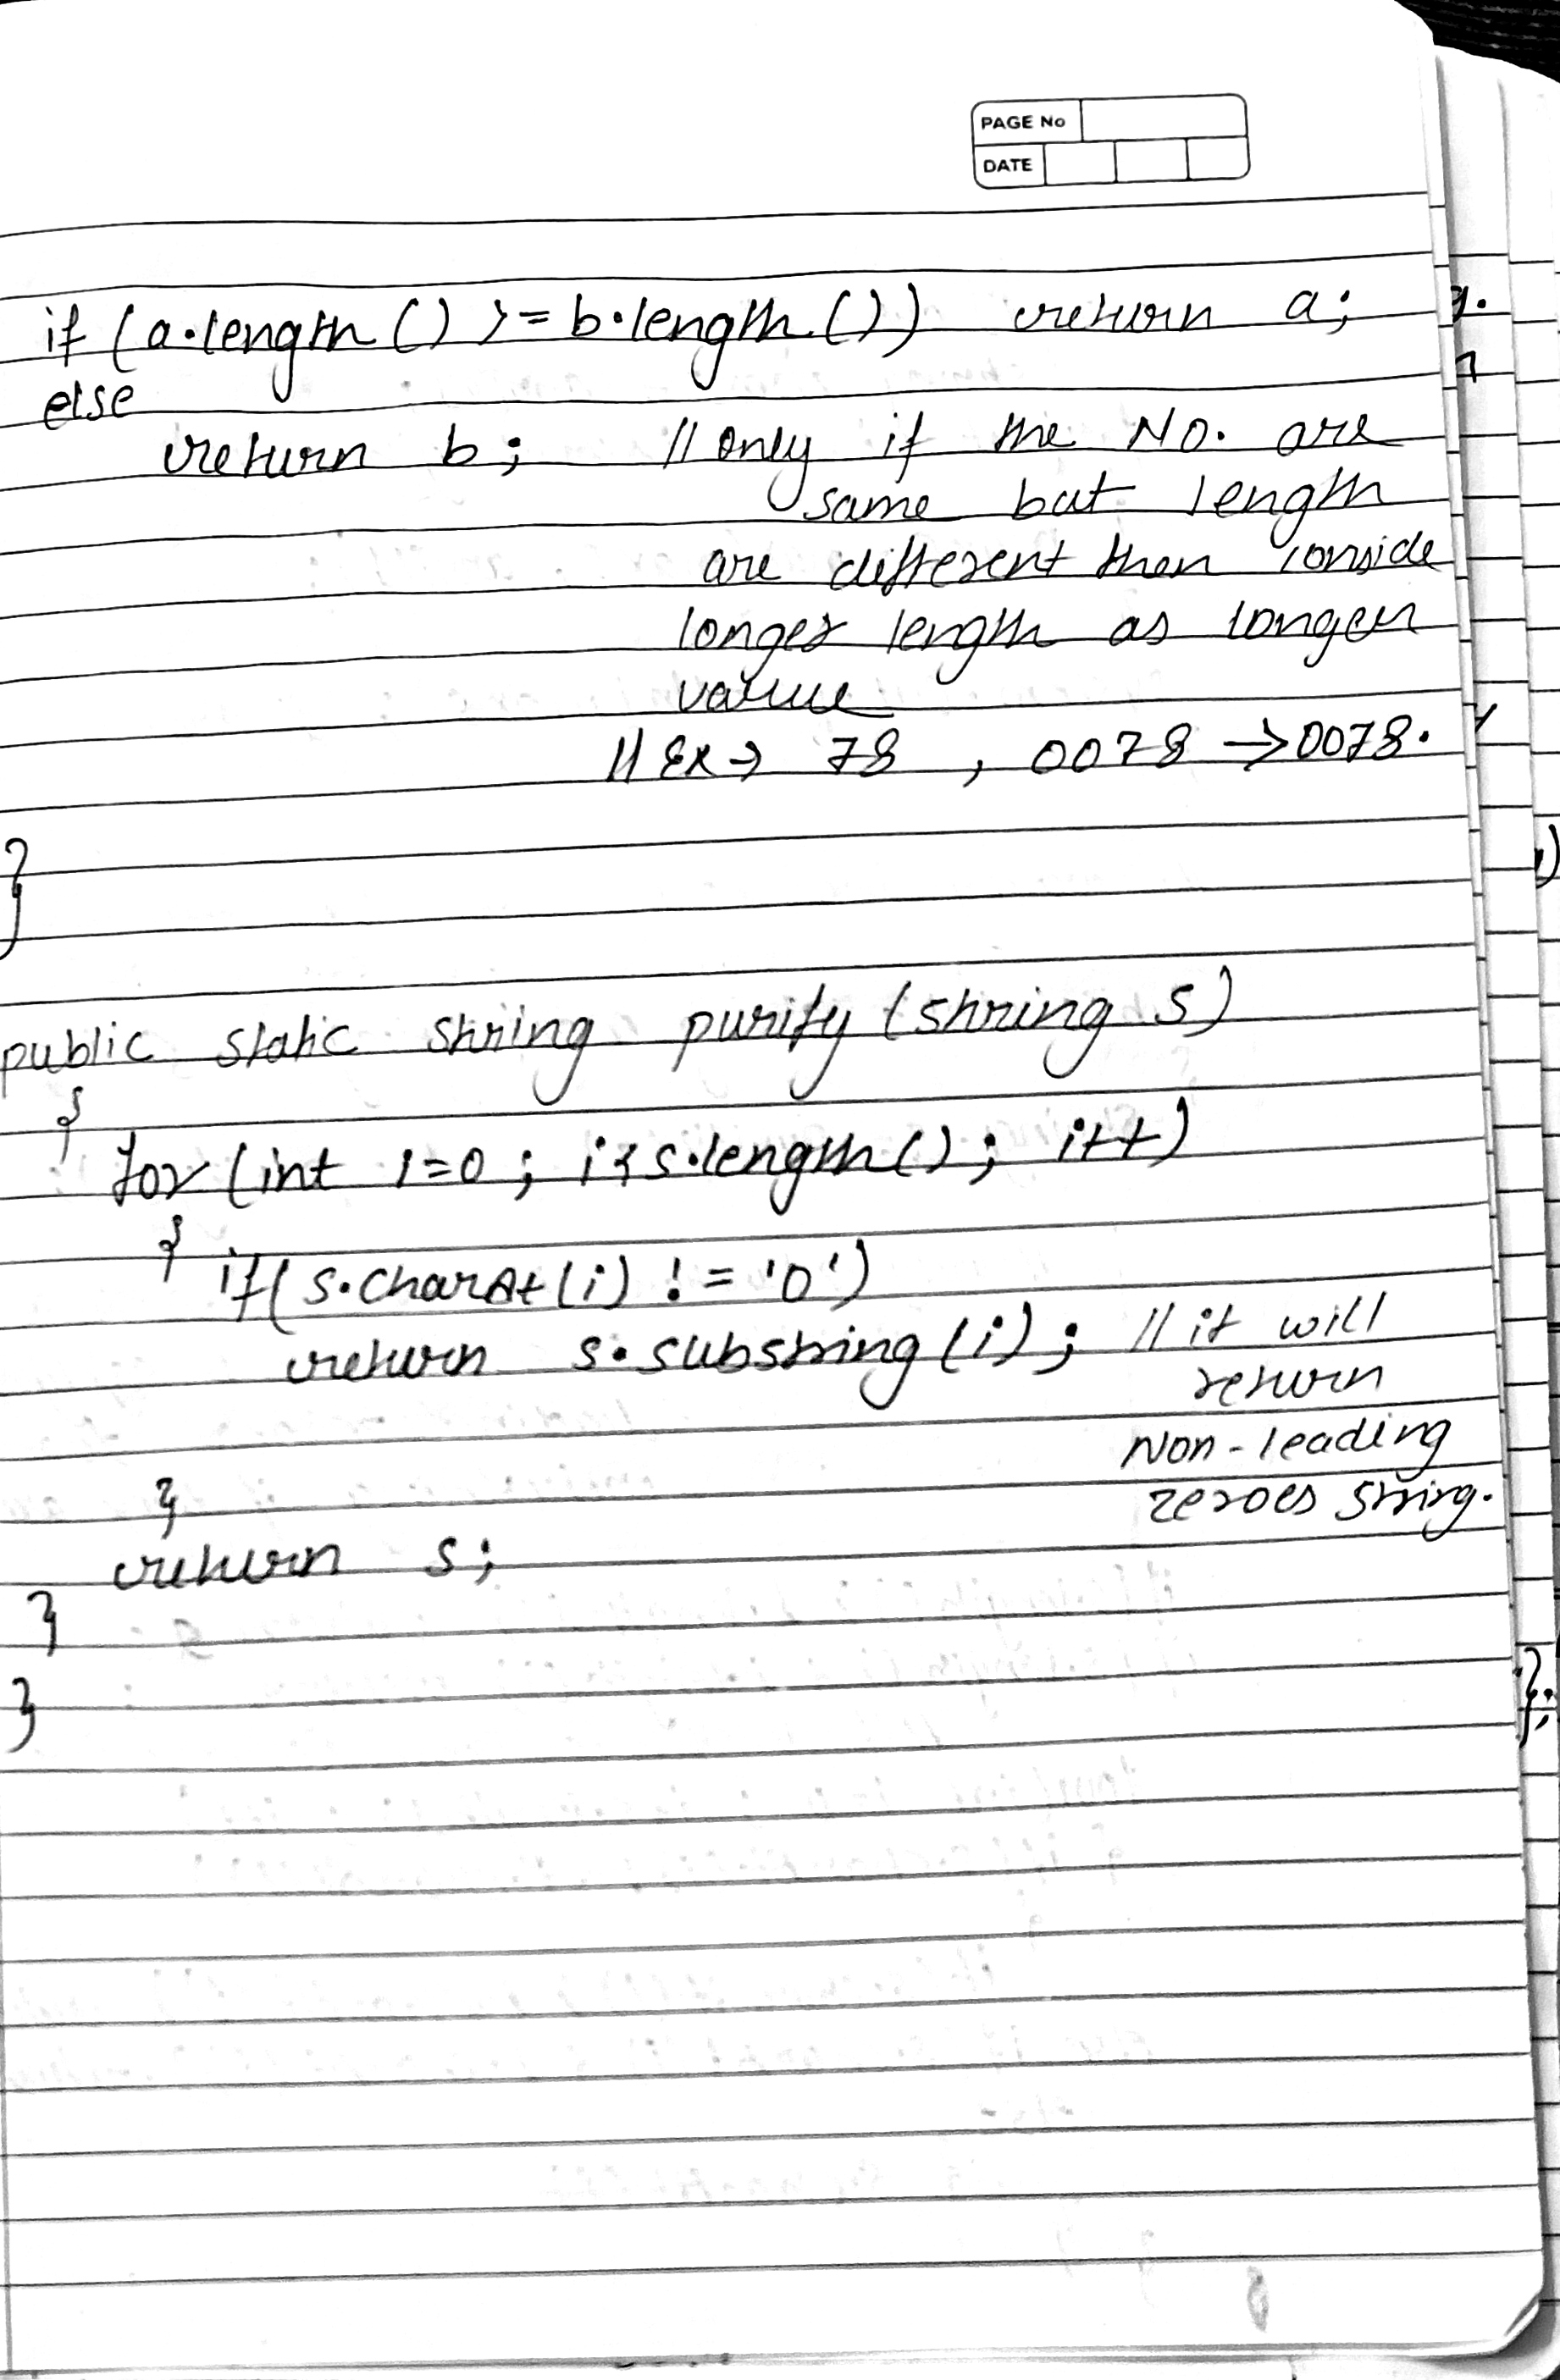 PAGE No
DATE
if (a.length () >= b.length ()) return a;
else
return b; // only if the No. are
same but length
are different then conside
longer length as longer
value
// Ex → 78 , 0078 → 0078.
}
public static string purify (string s)
{
for (int i=0 ; i<s.length() ; i++)
{ if( s.charAt (i) != '0')
return s.substring (i) ; // it will
return
Non-leading
zeroes string.
}
return s;
}
}